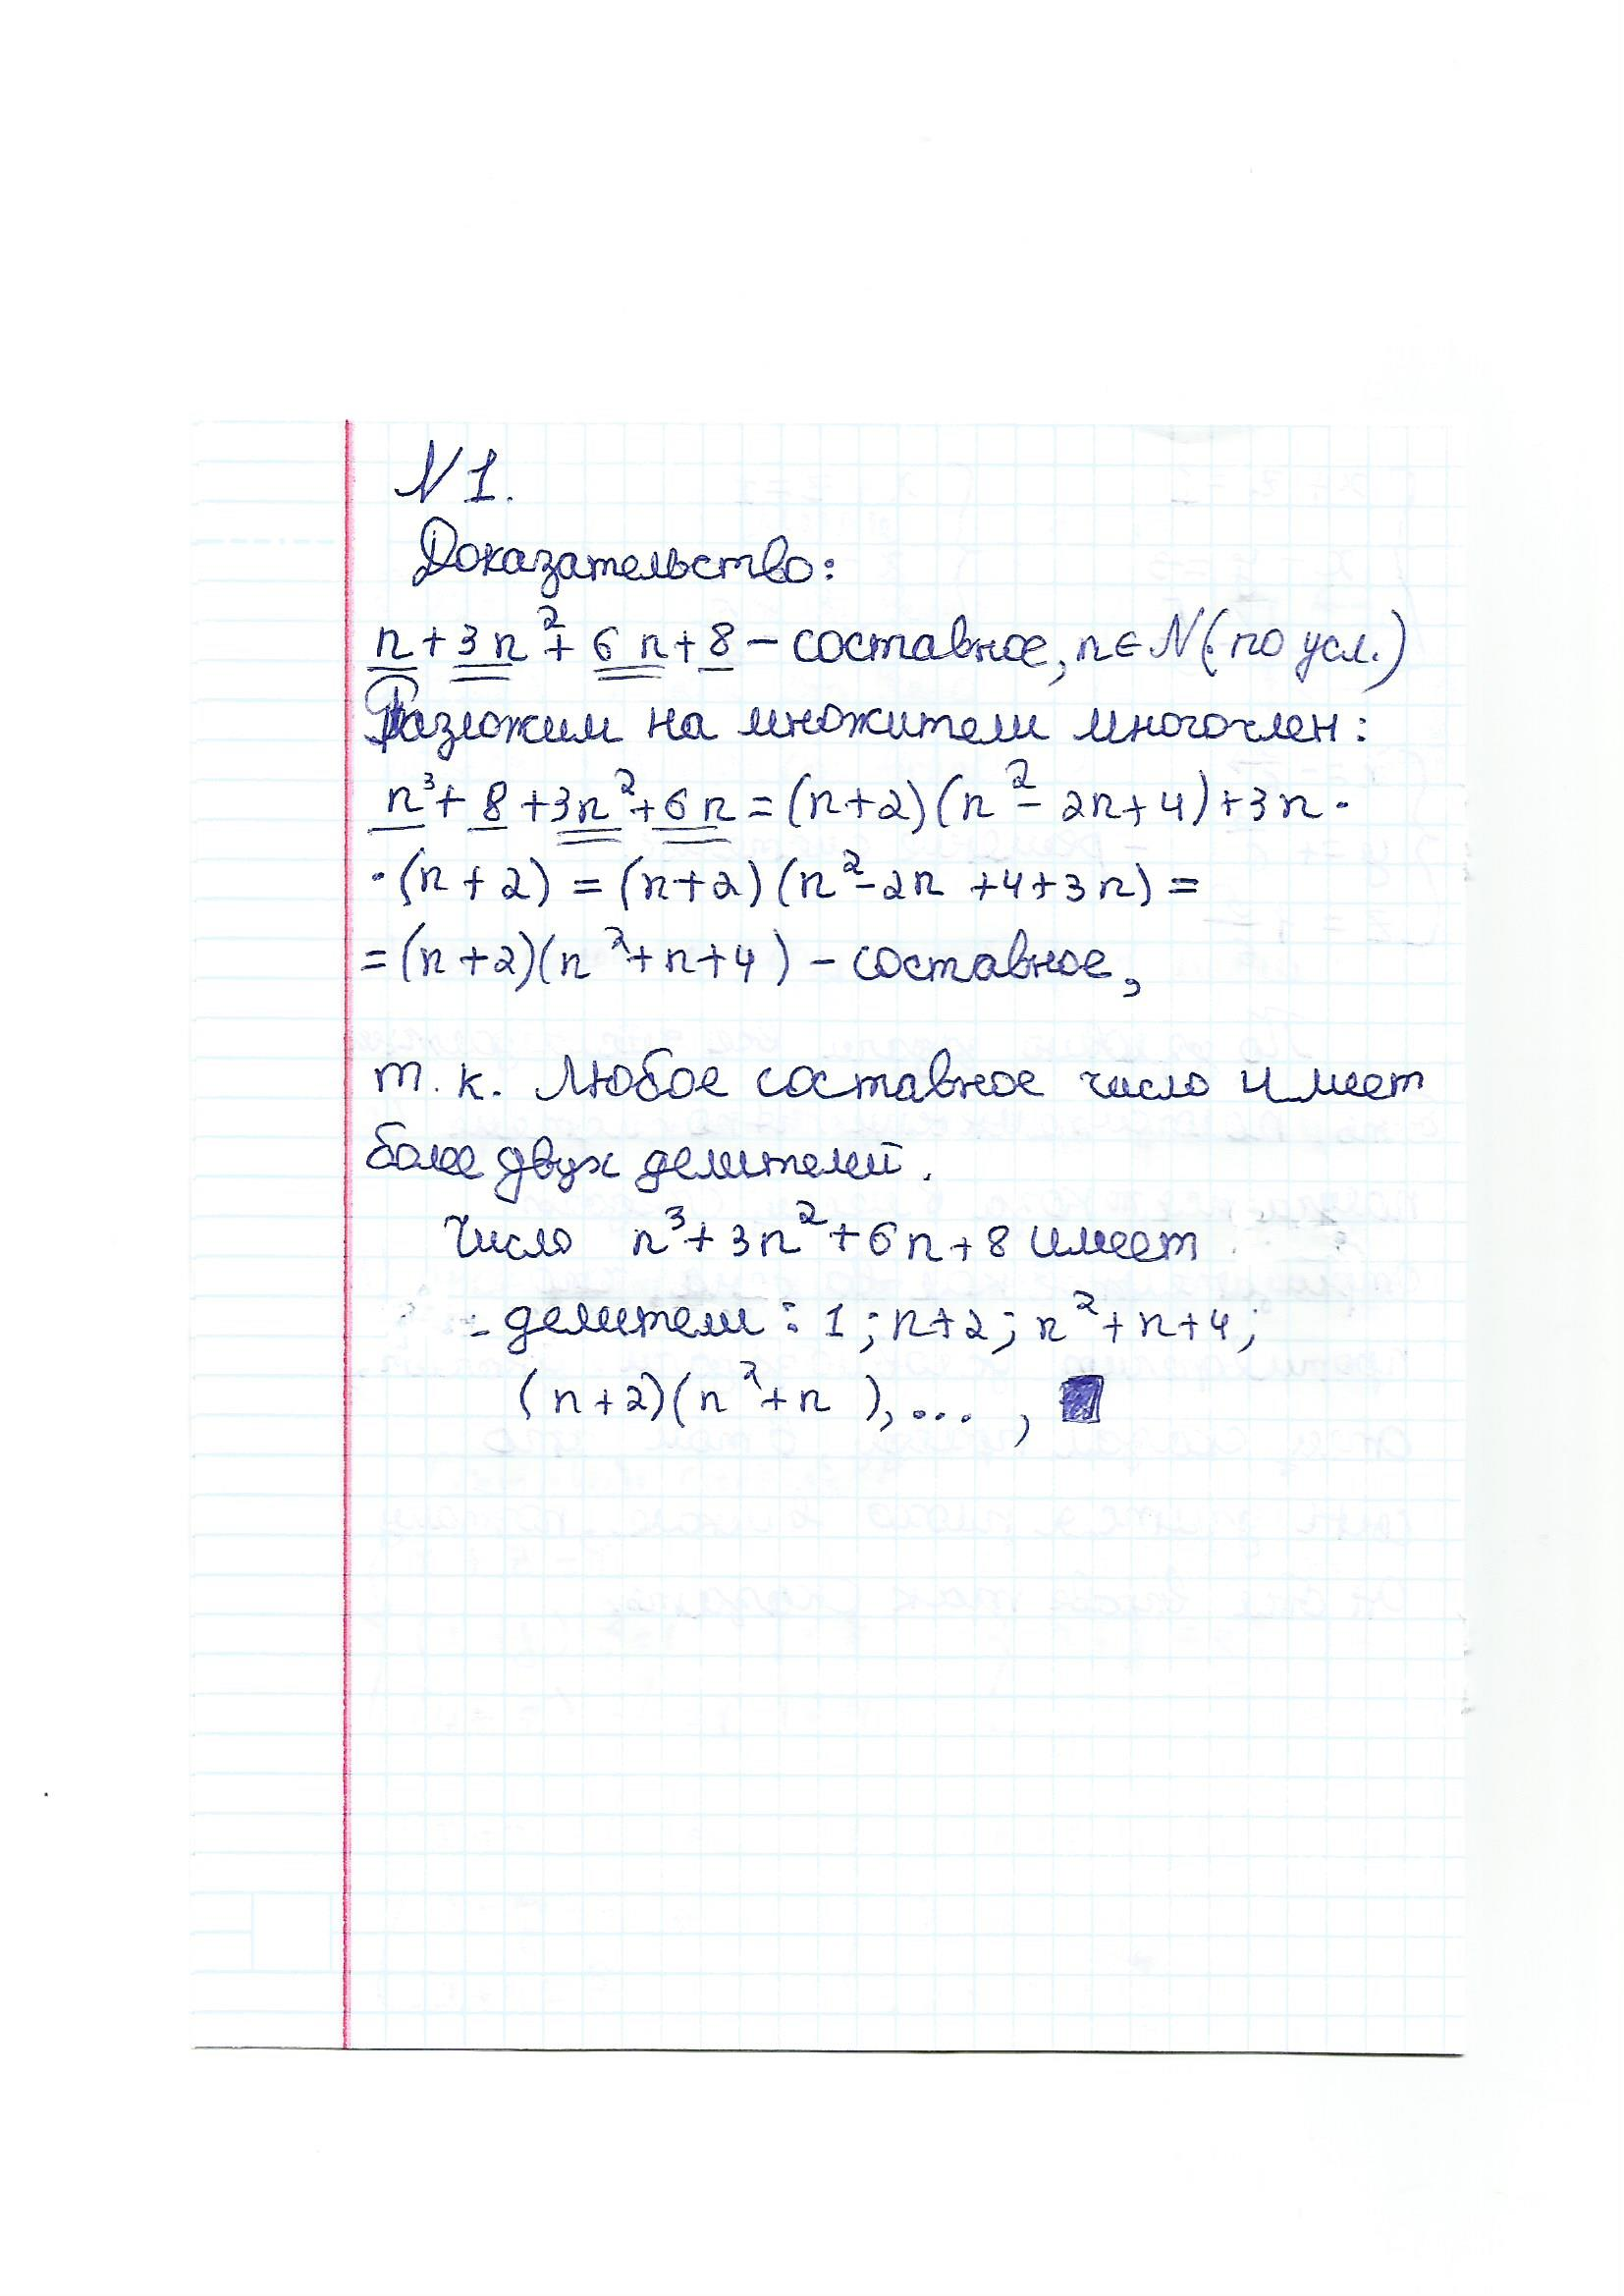 N 1.
Доказательство:
n + 3n² + 6n + 8 – составное, n ∈ N (по усл.)
Разложим на множители многочлен:
n³ + 8 + 3n² + 6n = (n+2)(n² - 2n + 4) + 3n ·
· (n + 2) = (n+2)(n² - 2n + 4 + 3n) =
= (n+2)(n² + n + 4) – составное,
т. к. любое составное число имеет
более двух делителей.
Число n³ + 3n² + 6n + 8 имеет
- делители: 1; n+2; n² + n + 4;
(n+2)(n² + n ), ... ,